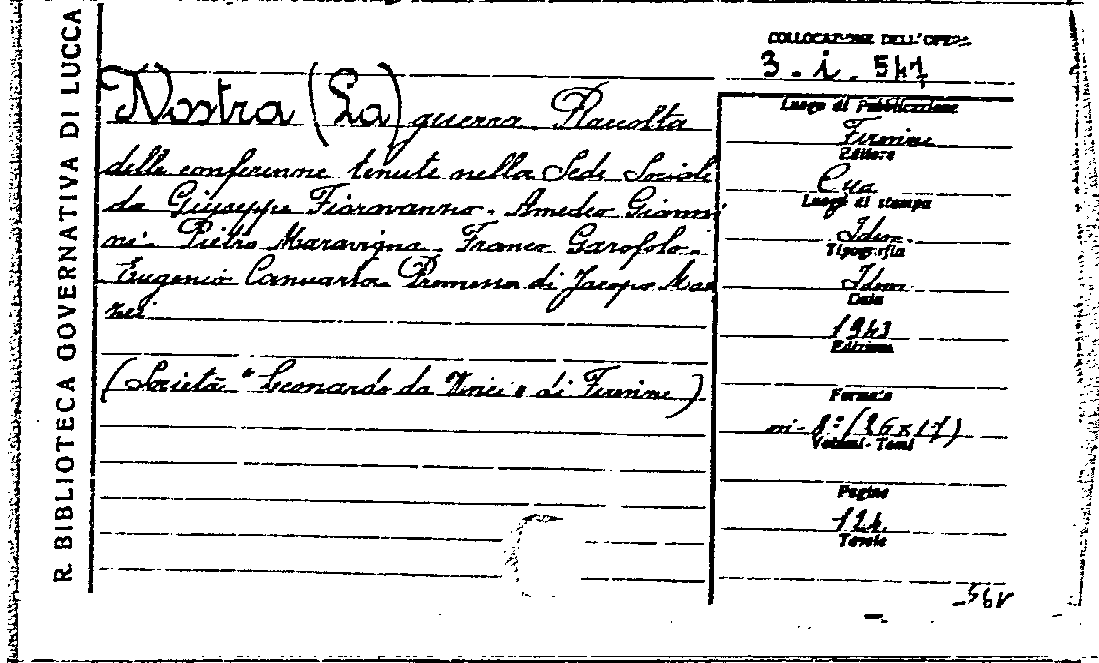 R. BIBLIOTECA GOVERNATIVA DI LUCCA
COLLOCAZIONE DELL'OPERA
3. i. 547
Nostra (La) guerra. Raccolta
delle conferenze tenute nella Sede Sociale
da Giuseppe Fioravanzo. Amedeo Gianni
ni. Pietro Maravigna. Franco Garofolo.
Eugenio Canevari. Premessa di Jacopo Maz
zei
(Società "Leonardo da Vinci" di Firenze)
Luogo di Pubblicazione
Firenze
Editore
Cya
Luogo di stampa
Idem.
Tipografia
Idem
Data
1943
Edizione
Formato
in-8º (26x17)
Volumi - Tomi
Pagine
124.
Tavole